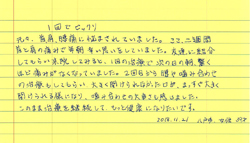 1回でビックリ
元々、首肩、腰痛に悩まされていました。ここ二週間
首と肩の痛みで半朝辛い思いをしていました。友達に紹介
してもらい来院してみると、1回の治療で次の日の朝、驚く
ほど痛みがなくなっていました。2回目から顎の噛み合わせ
の治療もしてもらい大きく開けられなかった口が、まっすぐ大きく
開けられる様になり、噛み合わせの大事さも感じました。
このまま治療を継続して、もっと健康になりたいです。
2018.11.21 女性